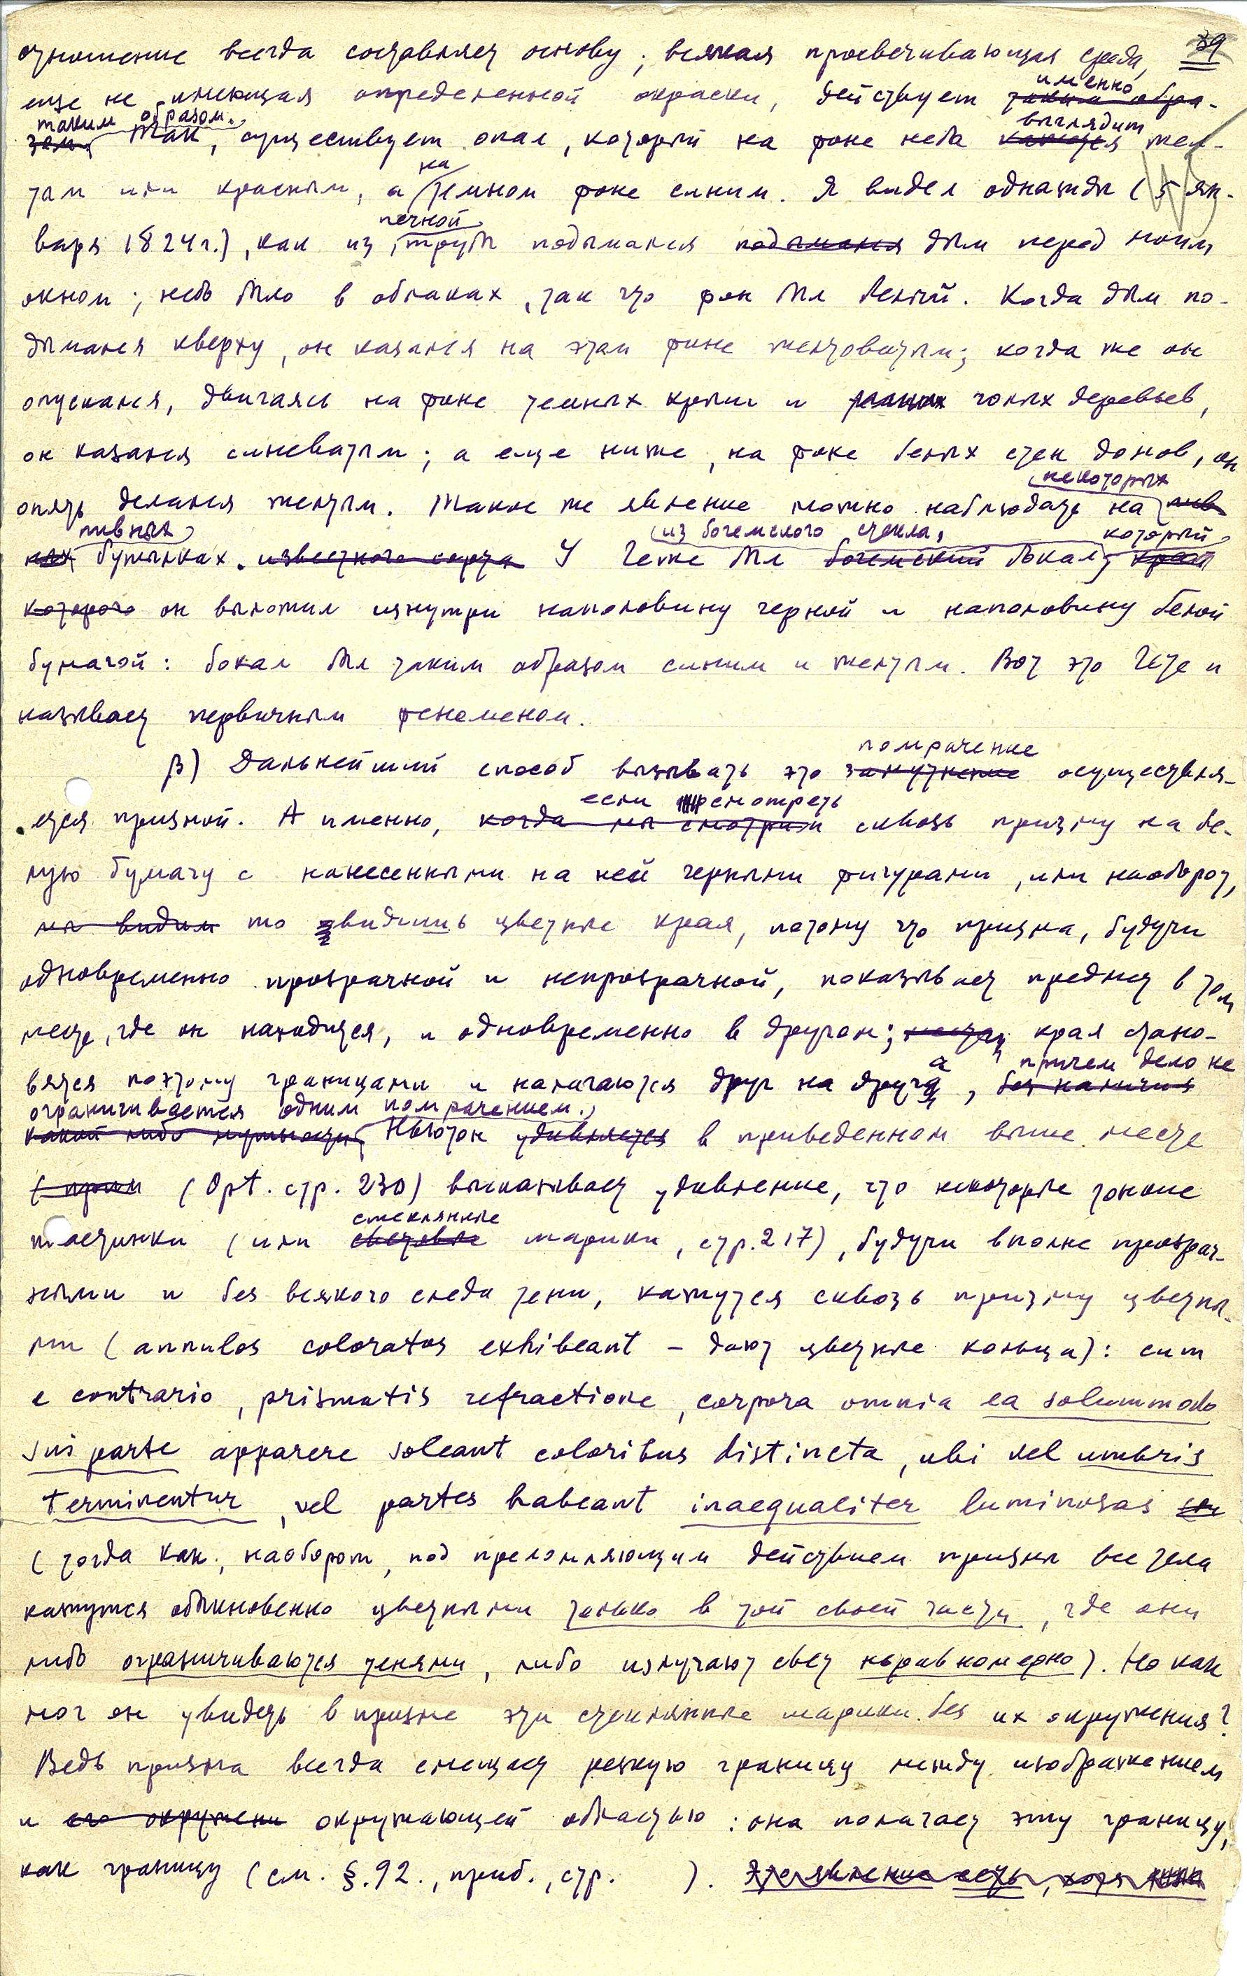 39
отношение всегда составляет основу; всякая просвечивающая среда,
еще не имеющая определенной окраски, действует именно
таким образом. Так, существует опал, который на фоне неба выглядит жел-
тым или красным, а на темном фоне синим. Я видел однажды (5 ян-
варя 1824 г.), как из печной трубы подымался подымался дым перед моим
окном; небо было в облаках, так что фон был белый. Когда дым по-
дымался кверху, он казался на этом фоне желтоватым; когда же он
опускался, двигаясь на фоне темных крыш и голых деревьев,
он казался синеватым; а еще ниже, на фоне белых стен домов, он
опять делался желтым. Такое же явление можно наблюдать на некоторых
пивных бутылках. известного сорта У Гете был богемский бокал из богемского стекла, который
которого он выложил изнутри наполовину черной и наполовину белой
бумагой: бокал был таким образом синим и желтым. Вот это Гете и
называет первичным феноменом.
β) Дальнейший способ вызывать это замутнение помрачение осуществля-
ется призмой. А именно, когда мы смотрим если смотреть сквозь призму на бе-
лую бумагу с нанесенными на ней черными фигурами, или наоборот,
мы видим то увидишь цветные края, потому что призма, будучи
одновременно прозрачной и непрозрачной, показывает предмет в том
месте, где он находится, и одновременно в другом; края стано-
вятся поэтому границами и налагаются друг на друга, без наличия причем дело не
какой либо мутности, ограничивается одним помрачением. Ньютон удивляется в приведенном выше месте
(Opt. стр. 230) высказывает удивление, что некоторые тонкие
пластинки (или стеклянные шарики, стр. 217), будучи вполне прозрач-
ными и без всякого следа тени, кажутся сквозь призму цветны-
ми (annulos coloratos exhibeant – дают цветные кольца): cum
e contrario, prismatis refractione, corpora omnia ea solummodo
sui parte apparere soleant coloribus distincta, ubi vel umbris
terminentur, vel partes habeant inaequaliter luminosas
(тогда как, наоборот, под преломляющим действием призмы все тела
кажутся обыкновенно цветными только в той своей части, где они
либо ограничиваются тенями, либо излучают свет неравномерно). Но как
мог он увидеть в призме эти стеклянные шарики без их окружения?
Ведь призма всегда смещает резкую границу между изображением
и его окружени окружающей областью: она полагает эту границу,
как границу (см. §. 92., приб., стр. ). Это явление есть, хотя